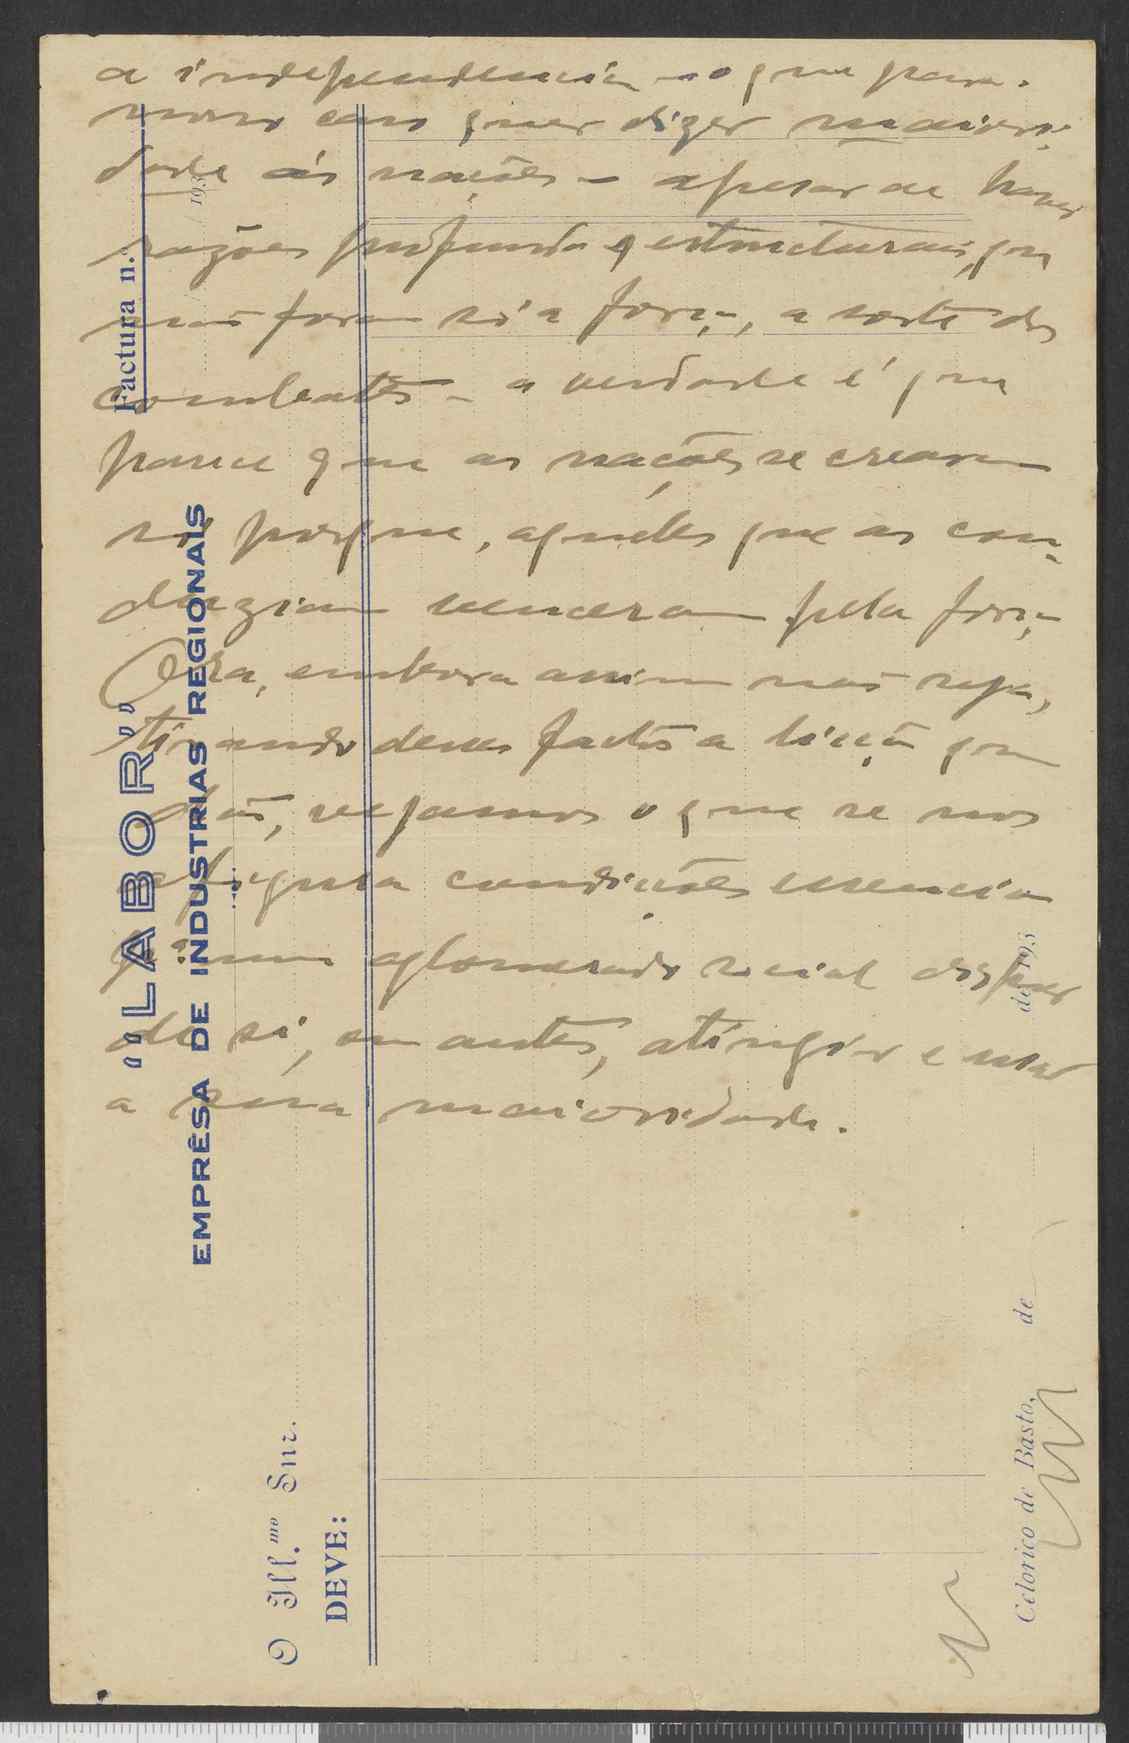 a independencia - o que para o
nosso caso quer dizer maiori-
dade ás nações - apesar de haver
razões profundas e estructuraes, que
não foram só a força, a sorte dos
combates - a verdade é que
parece que as nações se crearam
só porque, aqueles que as con-
duziam venceram pela força
Ora, embora assim não seja,
tirando desses factos a lição que
dão, vejamos o que se nos
afigura condições essenciaes
pª um aglomerado social dispor
de si, ou antes, atingir e usar
a sua maioridade.
Factura n.
/ / 193
"LABOR"
EMPRÊSA DE INDUSTRIAS REGIONAIS
O Ill.mo Snr.
DEVE:
Celorico de Basto, de de 193